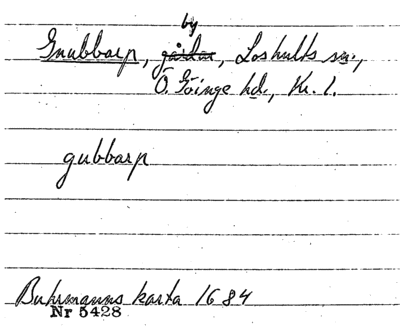 by
Gnubbarp, gårdar, Loshults sn.,
Ö. Göinge hd., Kr. l.
gubbarp
Buhrmanns karta 1684
Nr 5428